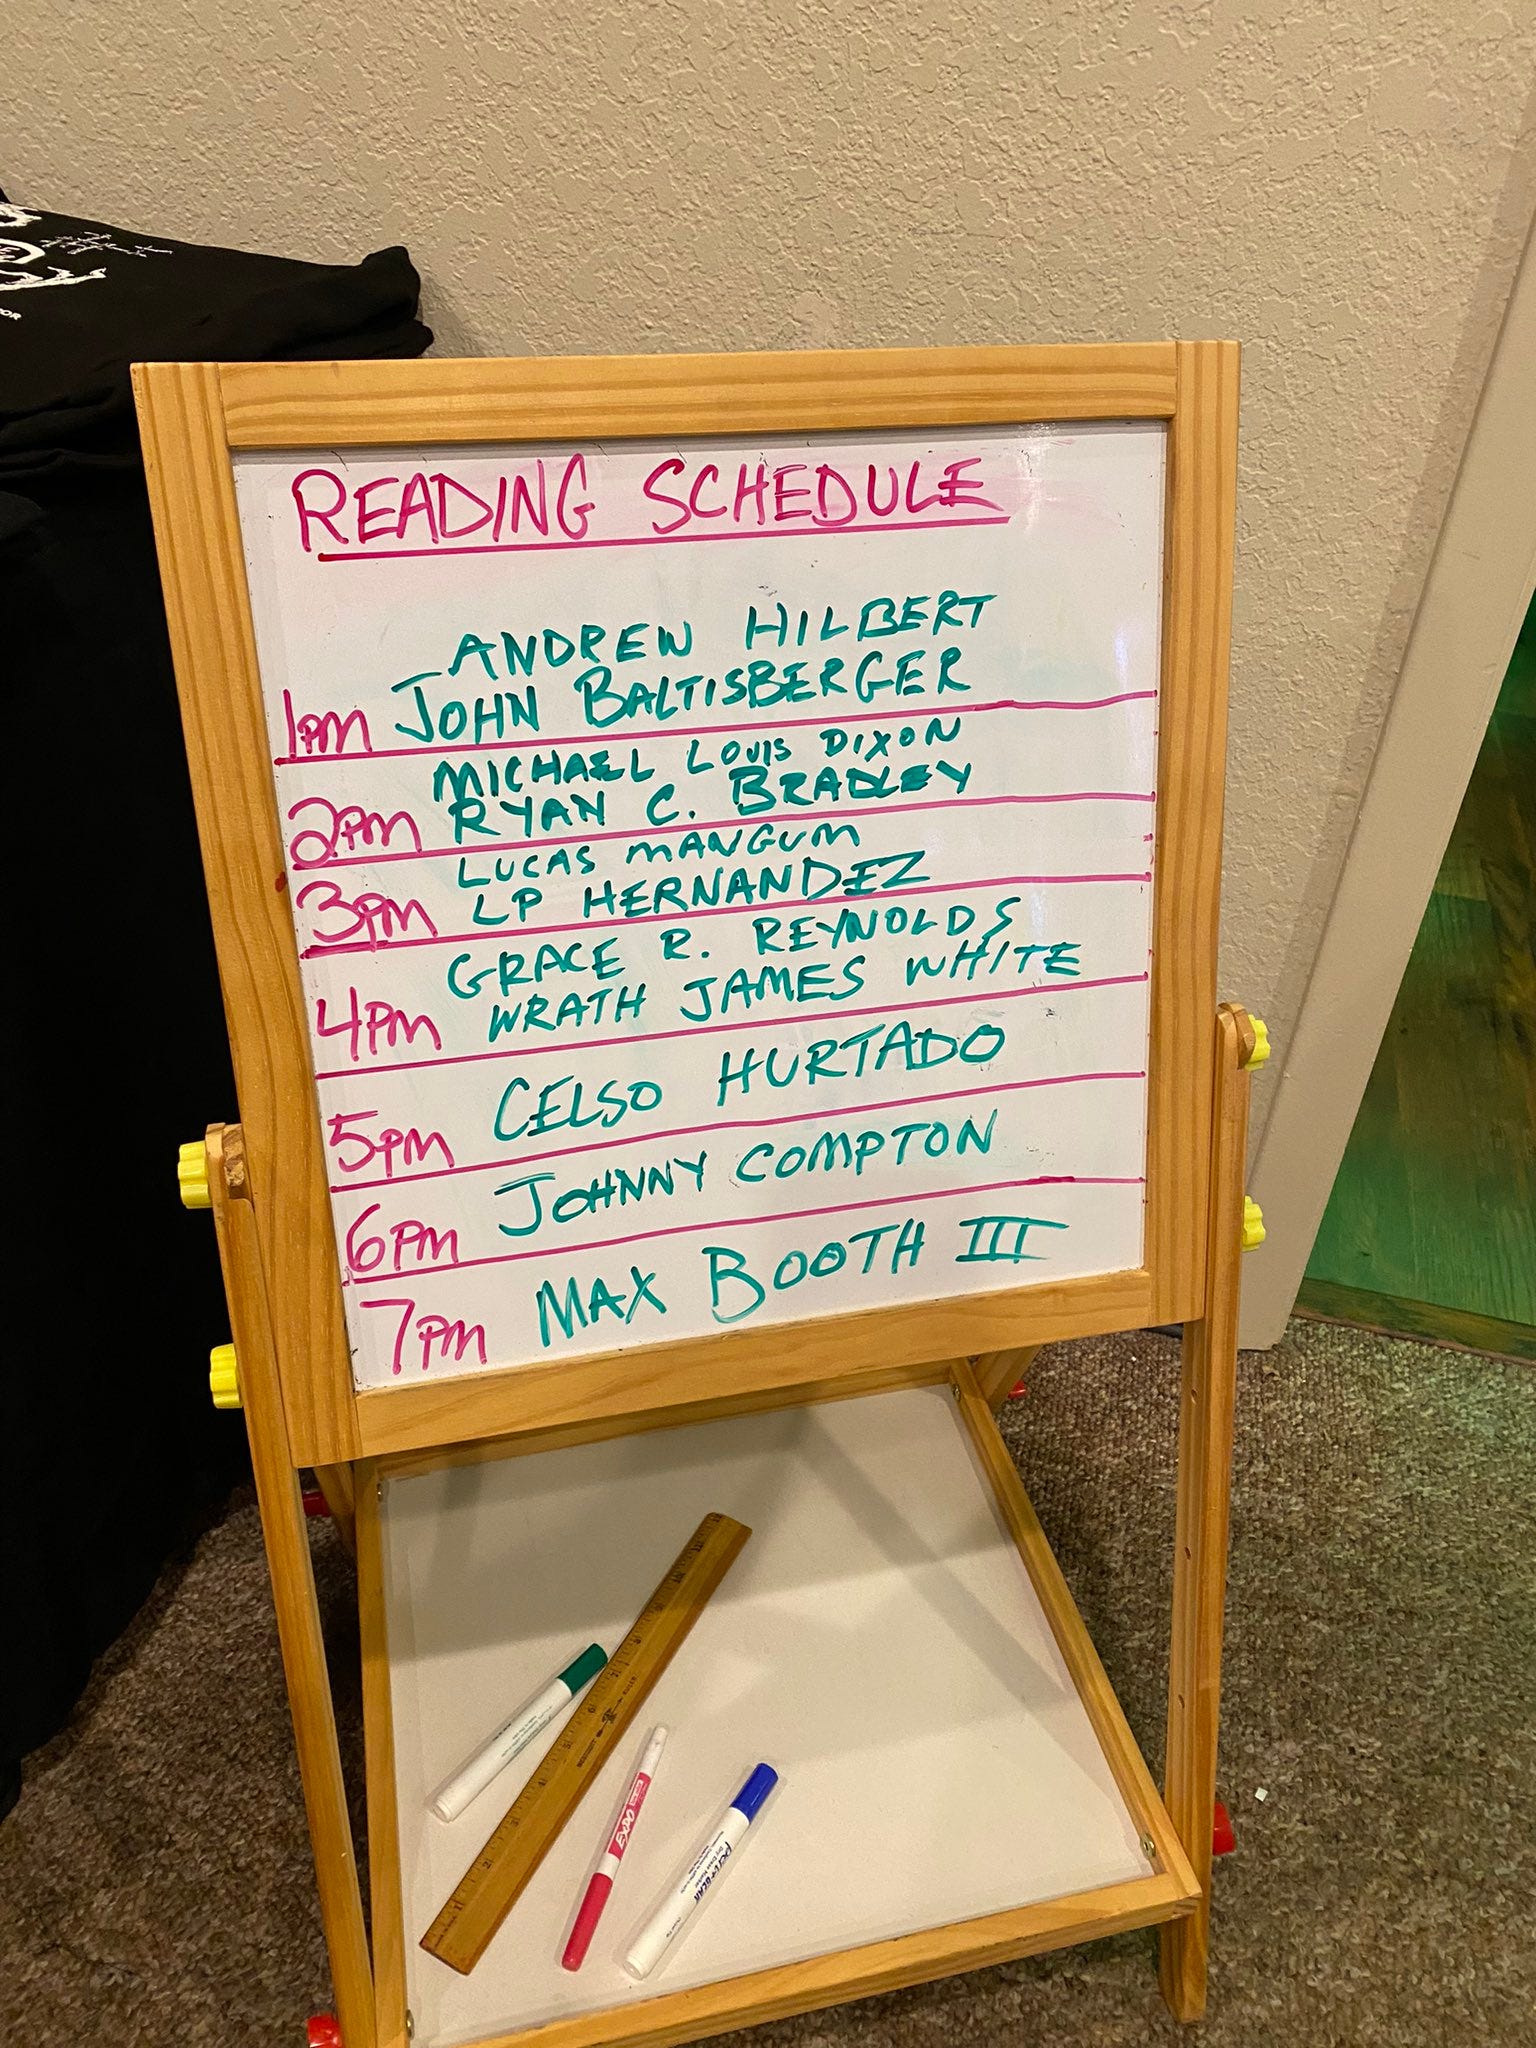 READING SCHEDULE
ANDREW HILBERT
1PM JOHN BALTISBERGER
MICHAEL LOUIS DIXON
2PM RYAN C. BRADLEY
LUCAS MANGUM
3PM LP HERNANDEZ
GRACE R. REYNOLDS
4PM WRATH JAMES WHITE
5PM CELSO HURTADO
6PM JOHNNY COMPTON
7PM MAX BOOTH III
EXPO